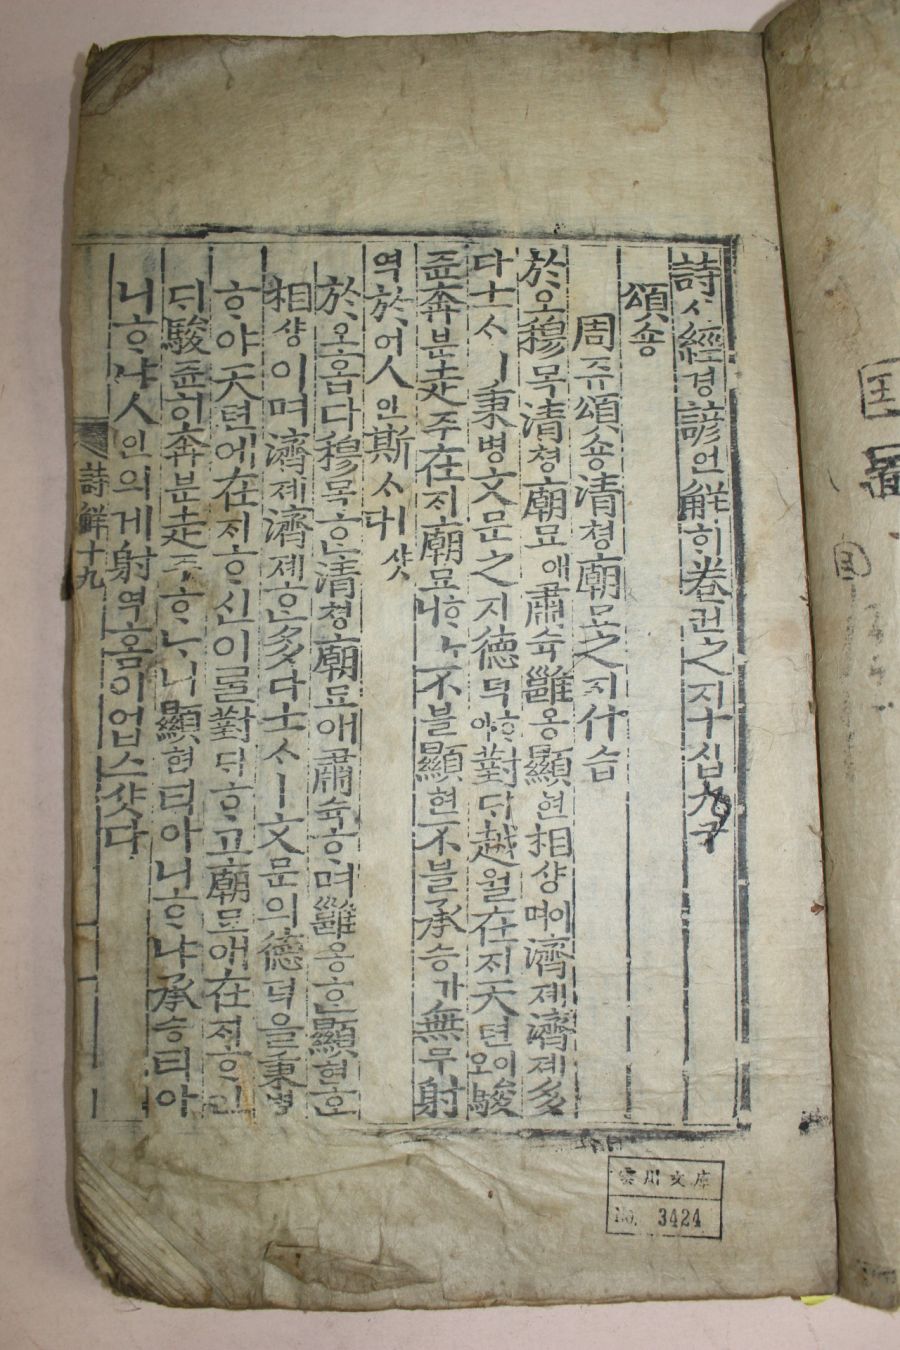 詩시經경諺언解ᄒᆡ卷권之지十십九구
頌숑
周쥬頌숑淸쳥廟묘之지什습
於오穆목淸쳥廟묘애肅슉雝옹顯현相샹이며濟졔濟졔多
다士ᄉᆞㅣ秉병文문之지德덕ᄒᆞ야對ᄃᆡ越월在ᄌᆡ天텬이오駿
쥰奔분走주在ᄌᆡ廟묘ᄒᆞᄂᆞ니不블顯현不블承승가無무射
역於어人인斯ᄉᆞ샷다
於오홉다穆목ᄒᆞᆫ淸쳥廟묘애肅슉ᄒᆞ며雝옹ᄒᆞᆫ顯현ᄒᆞᆫ
相샹이며濟졔濟졔ᄒᆞᆫ多다士ᄉᆞㅣ文문의德덕을秉병
ᄒᆞ야天텬에在ᄌᆡᄒᆞ신이ᄅᆞᆯ對ᄃᆡᄒᆞ고廟묘애在ᄌᆡᄒᆞ인
ᄃᆡ駿쥰히奔분走주ᄒᆞᄂᆞ니顯현티아니ᄒᆞ냐承승티아
니ᄒᆞ냐人인의게射역홈이업스샷다
詩解十九
雲川文庫
No. 3424